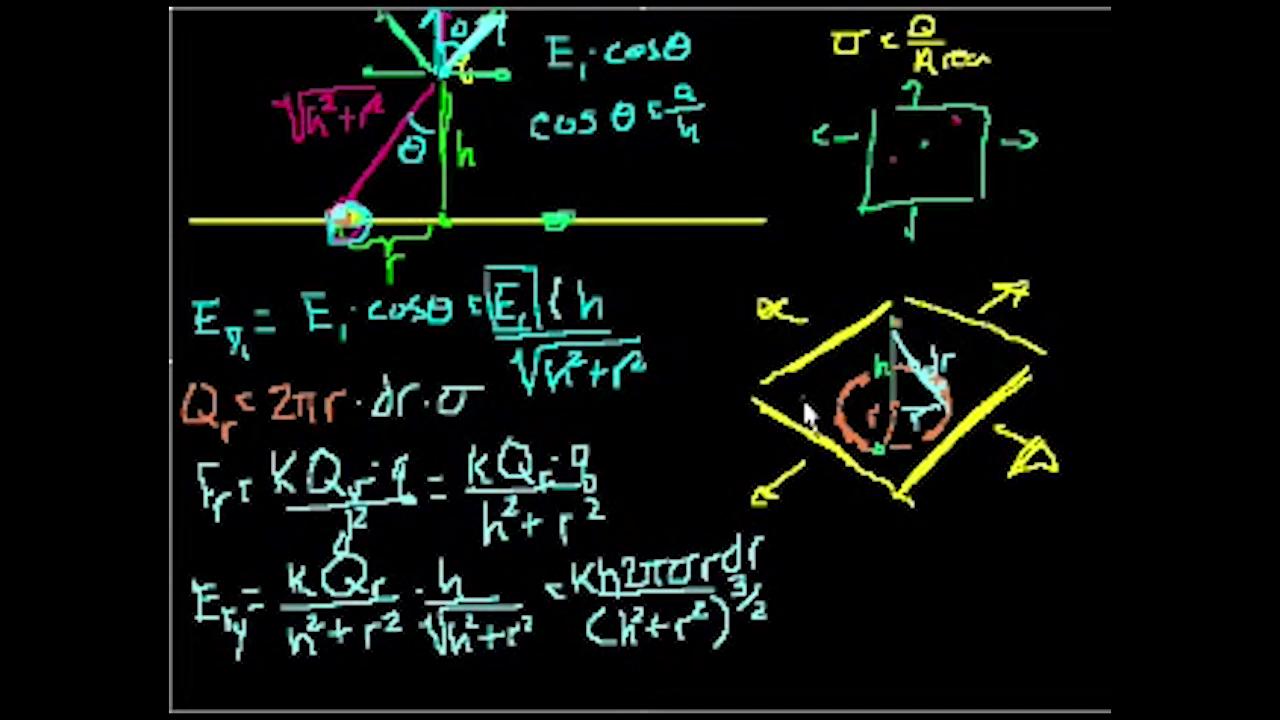 E₁ · cosθ
cos θ = a/h
σ = Q/Area
√(h²+r²)
θ
h
r
E_y₁ = E₁ · cosθ = E₁ (h / √(h²+r²)
Q_r = 2πr · dr · σ
h
dr
r
F_r = KQ_r · q / d² = KQ_r · q / h²+r²
E_ry = KQ_r / h²+r² · h / √(h²+r²) = Kh2πσrdr / (h²+r²)^3/2